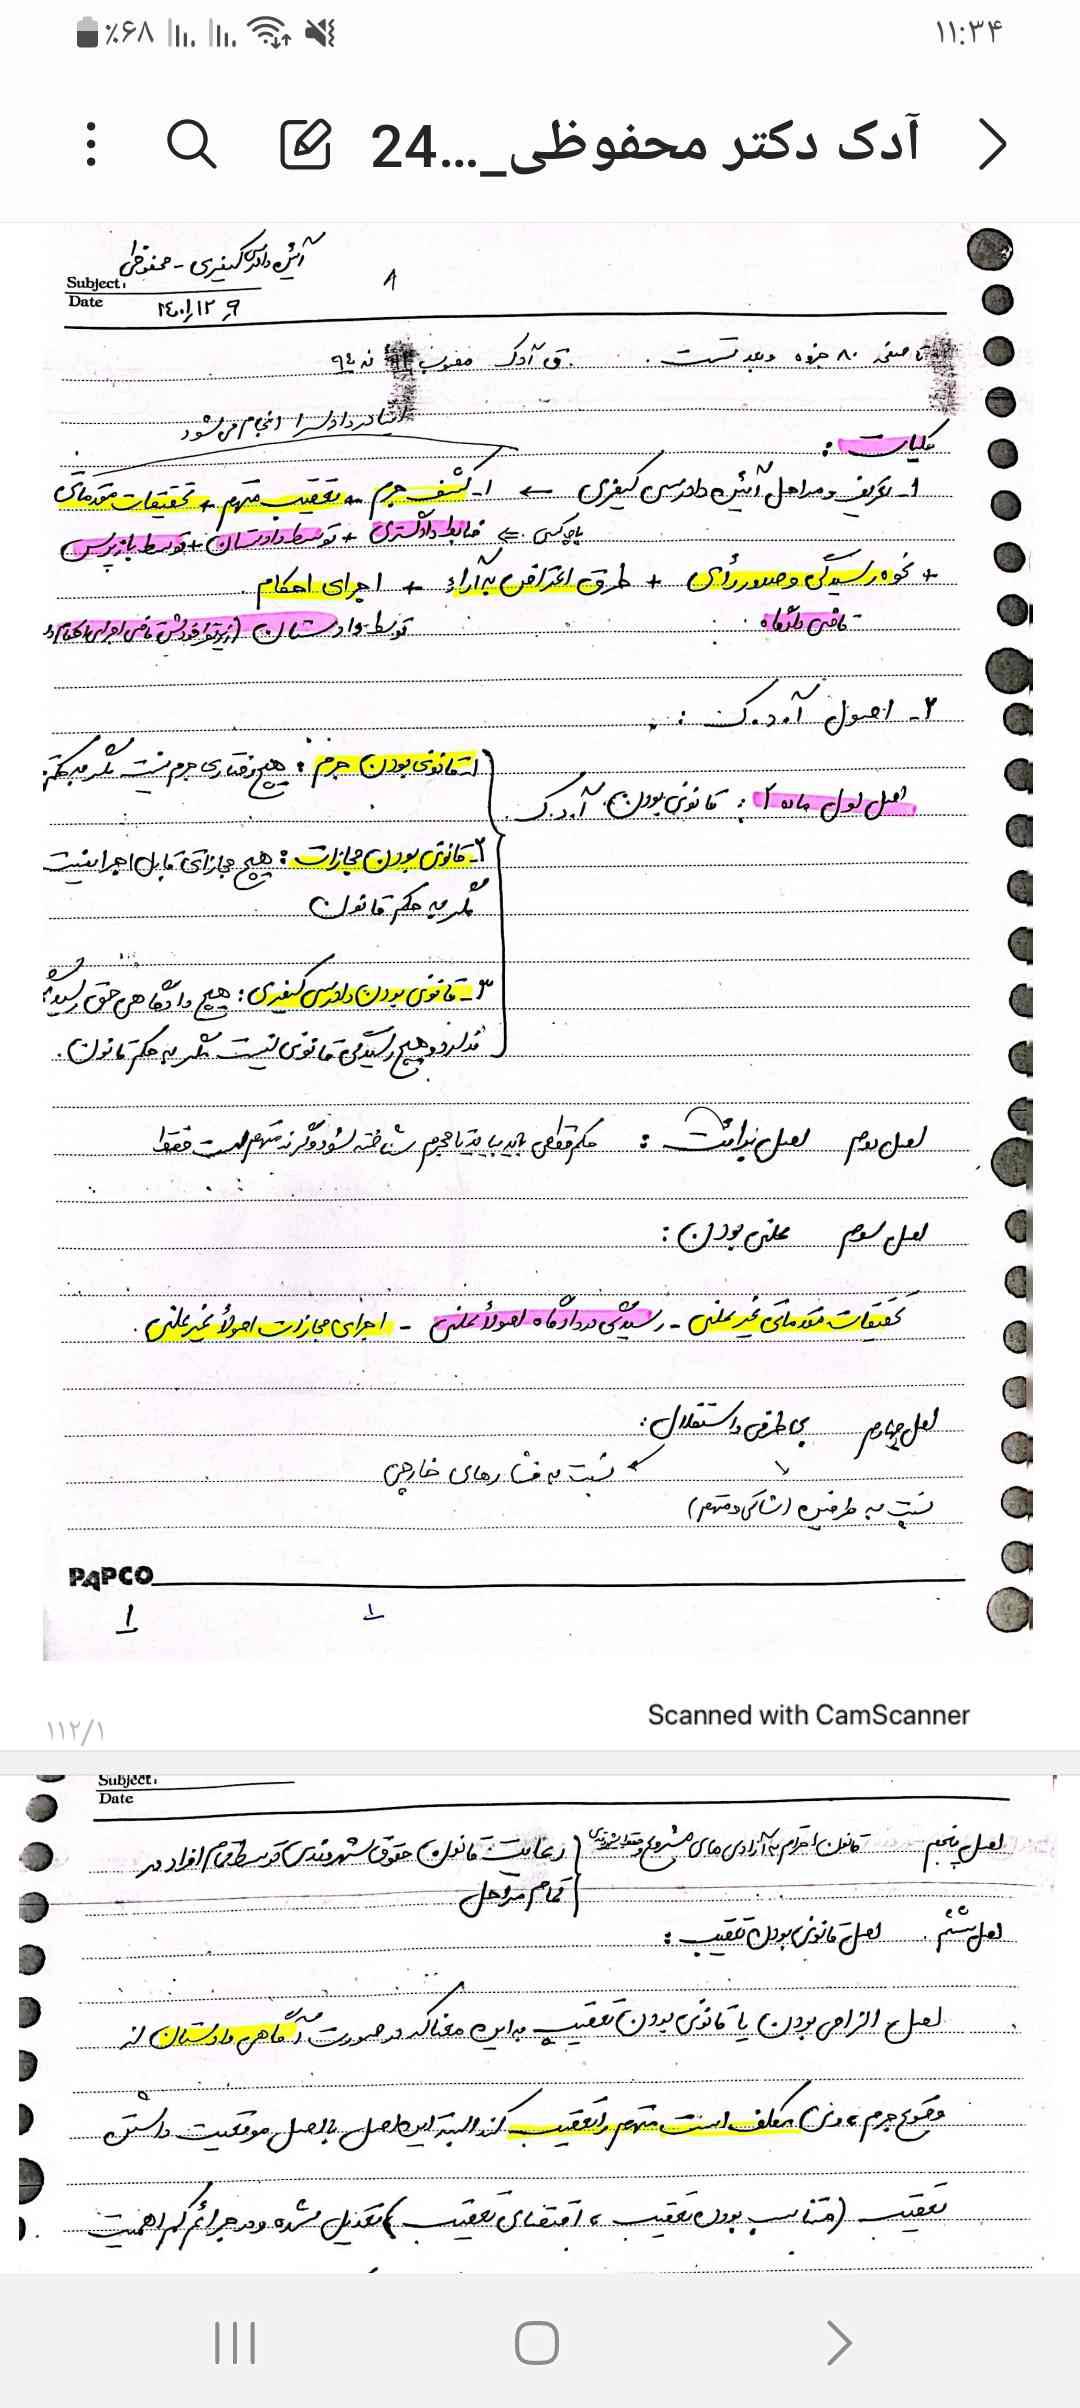 ٪۶۸
۱۱:۳۴
آدک دکتر محفوظی_...24
آئین دادرسی کیفری - محفوظی
Subject:
Date ۱۴۰۱٫۱۲٫۹
۱
تا صفحه ۸۰ جزوه وبعد تست . ق آدک مصوب ۹۲ نه ۹۴
اینا در دادسرا انجام می‌شود
کلیات :
۱- تعریف و مراحل آئین دادرسی کیفری ← ۱- کشف جرم + تعقیب متهم + تحقیقات مقدماتی
باچه کسی ⇐ ضابط دادگستری + توسط دادستان + توسط بازپرس
+ نحوه رسیدگی و صدور رأی + طرق اعتراض به آراء + اجرای احکام .
قاضی دادگاه . توسط دادستان (زیر نظر خودش قاضی اجرای احکام
۲- اصول آ.د.ک :
اصل اول ماده ۲ : قانونی بودن آ.د.ک
۱- قانونی بودن جرم : هیچ رفتاری جرم نیست مگر به حکم
۲- قانونی بودن مجازات : هیچ مجازاتی قابل اجرا نیست
مگر به حکم قانون
۳- قانونی بودن دادرسی کیفری : هیچ دادگاهی حق رسیدگی
ندارد و هیچ رسیدگی قانونی نیست مگر به حکم قانون .
اصل دوم اصل برائت : حکم قطعی باید بیاید تا مجرم شناخته بشود وگرنه متهم است فقط
اصل سوم علنی بودن :
تحقیقات مقدماتی غیرعلنی - رسیدگی در دادگاه اصولاً علنی - اجرای مجازات اصولاً غیرعلنی .
اصل چهارم بی طرفی و استقلال :
نسبت به فشارهای خارجی
نسبت به طرفین (شاکی و متهم)
PAPCO
۱ ۱
Scanned with CamScanner
۱۱۲/۱
Subject:
Date
اصل پنجم قانون احترام به آزادی های مشروع و حقوق شهروندی رعایت قانون حقوق شهروندی توسط تمام افراد در
تمام مراحل
اصل ششم . اصل قانونی بودن تعقیب :
اصل الزامی بودن یا قانونی بودن تعقیب به این معناکه در صورت آگاهی دادستان از
وقوع جرم، وی مکلف است متهم را تعقیب کند البته این اصل با اصل موقعیت داشتن
تعقیب (متناسب بودن تعقیب ، اقتضای تعقیب) تعدیل شده و در جرائم کم اهمیت